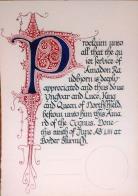 Proclaim unto
all that the qu
iet service of
Amadon Ra
udbjorn is deeply
appreciated and thus do us
Yngvar and Luce, King
and Queen of Northshield,
bestow unto him this Awa
rd of the Cygnus. Done
this ninth of June, AS LIII at
Border Skirmish.